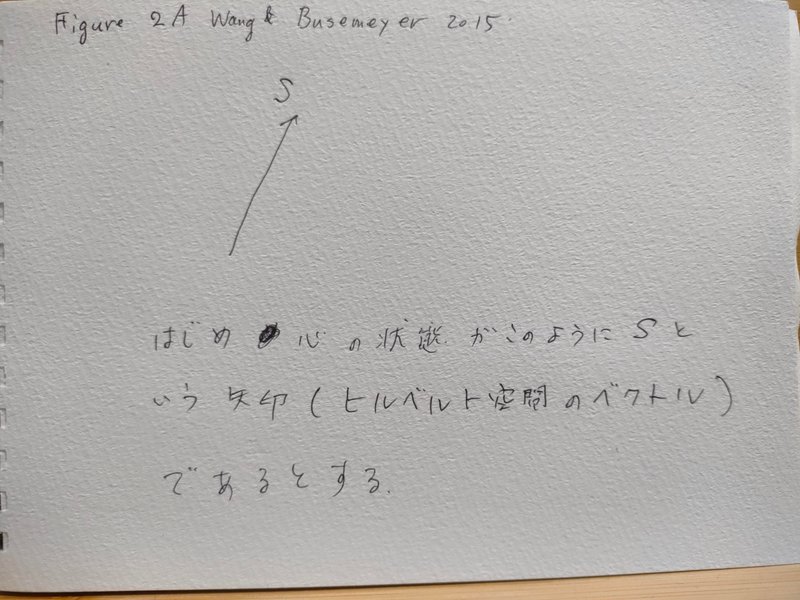 Figure 2A Wang & Busemeyer 2015.
S
はじめ 心の状態がこのようにSと
いう矢印(ヒルベルト空間のベクトル)
であるとする.